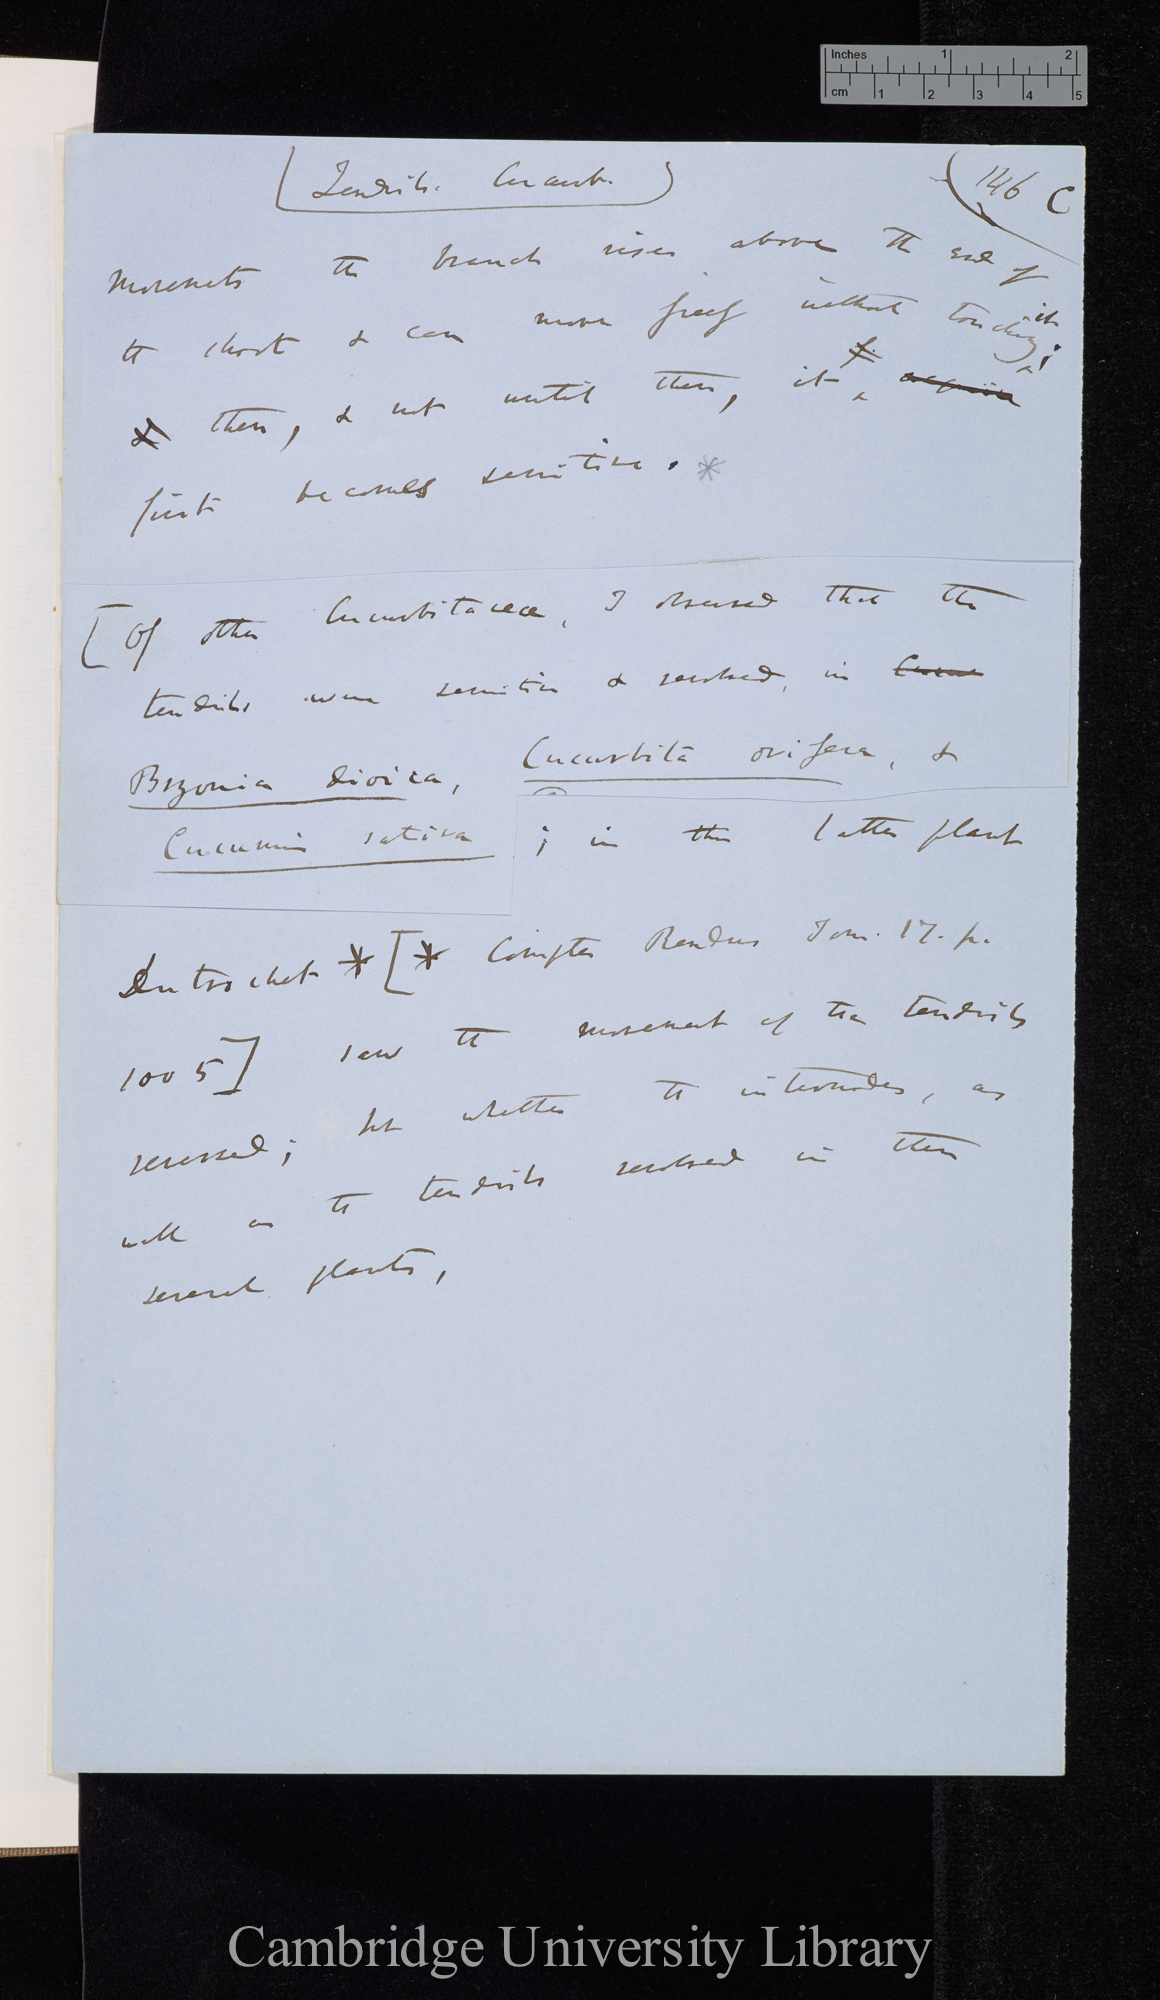 Inches 1 2
cm 1 2 3 4 5
(Tendrils. Cucurb.) (146 C
movements the branch rises above the end of
the shoot & can move freely without touching it;
& then, & not until then, it
first becomes sensitive. *
[Of other Cucurbitaceæ, I observed that the
tendrils were sensitive & revolved, in
Bryonia dioica, Cucurbita ovifera, &
Cucumis sativa ; in the latter plant
Dutrochet * [* Comptes Rendus Tom. 17. p.
1005] saw the movement of the tendrils
reversed; but whether the internodes, as
well as the tendrils revolved in these
several plants,
Cambridge University Library